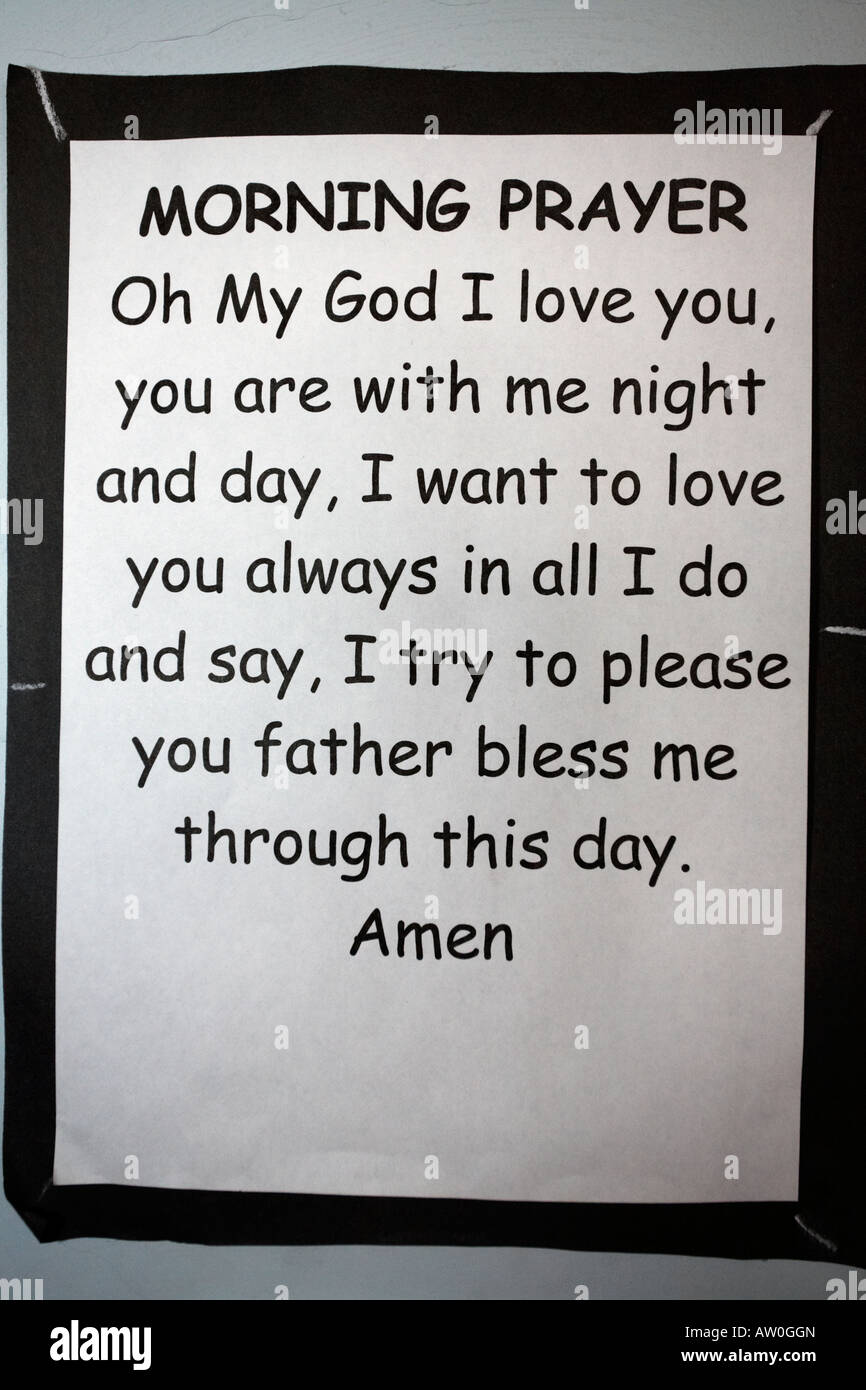 MORNING PRAYER
Oh My God I love you,
you are with me night
and day, I want to love
you always in all I do
and say, I try to please
you father bless me
through this day.
Amen
alamy
Image ID: AW0GGN
www.alamy.com